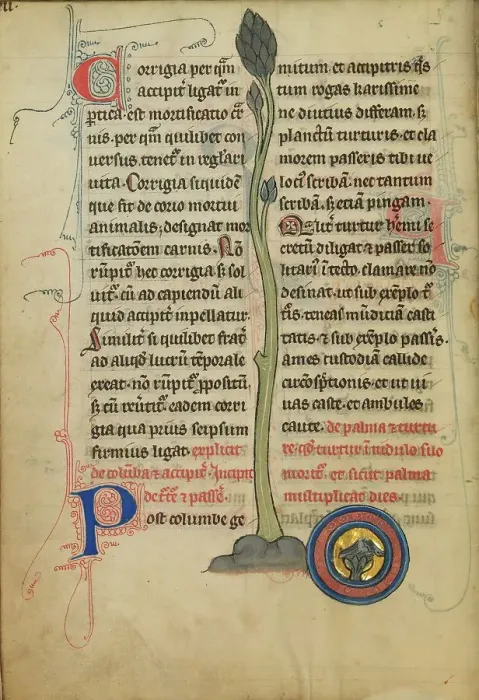 Corrigia per qm̄
accipit̄ ligat̄ in
ptica. est mortificatio cr̄
nis. per qm̄ quilibet con
uersus. tenet̄ in reglari
uita. Corrigia siquidē
que fit de corio mortui
animalis; designat mor
tificatōem carnis. Nō
rūpit̄ hec corrigia; sꝫ sol
uit̄. cū ad capiendū ali
quid accipit̄ inpellatur.
Similit̄ si quilibet frat̄
ad aliqd̄ lucrū tēporale
exeat. nō rūpit̄ ppositū,
sꝫ cū reūtit̄. eadem corri
gia qua prius seipsum
firmius ligat. explicit
de columba ⁊ accipit̄. Incipit
de ⁊ passē.
Post columbe ge
mitum et accipitris
tum rogas karissime
ne diutius differam. sꝫ
planctū turturis. et cla
morem passeris tibi ue
loci⁹ scribā. nec tantum
scribā. sꝫ etiā pingam.
turtur se
cretū diligat ⁊ passer so
litari⁹ ī tecto. clamare nō
desinat. ut sub exēplo t̄
t̄is. teneas mūdiciā casti
tatis. ⁊ sub exēplo passīs.
ames custodiā callide
circōspt̄ionis. et ut ui
uas caste. et ambules
caute. de palma ⁊ turtu
re. qō turtur ī nidulo suo
morit̄. et sicut palma
multiplicat dies.